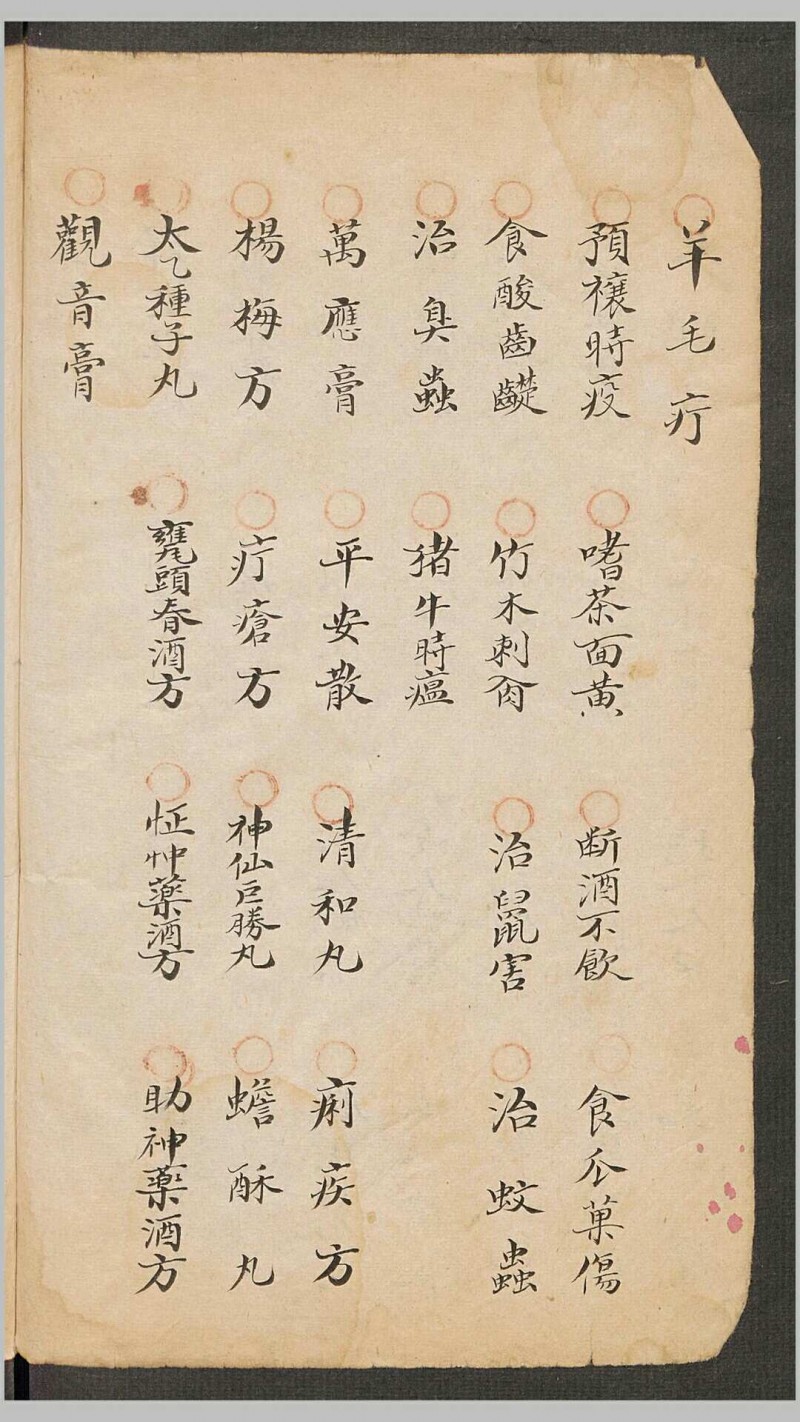 羊毛疔
預禳時疫 嗜茶面黄 断酒不飲 食瓜菓傷
食酸齒齼 竹木刺肉 治鼠害 治蚊蟲
治臭蟲 猪牛時瘟
萬應膏 平安散 清和丸 痢疾方
楊梅方 疔瘡方 神仙巨勝丸 蟾酥丸
太乙種子丸 甕頭春酒方 怔忡藥酒方 助神藥酒方
觀音膏